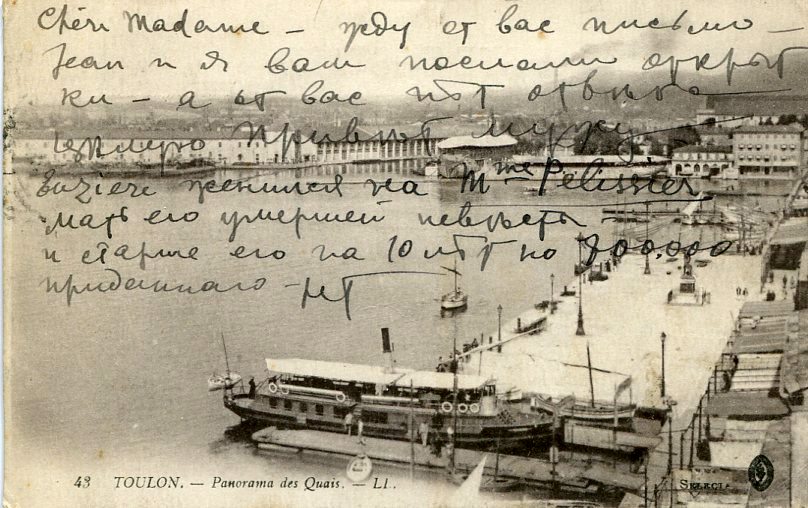 Chère Madame – жду от вас письмо –
Jean и я вам послали открыт
ки – а от вас нѣт отвѣта
Привѣт мужу
женился на Mme Pelissier
мать его умершей невѣсты –
и старше его на 10 лѣт но 800.000
приданнаго –
43 TOULON. – Panorama des Quais. – LL.
SELECTA